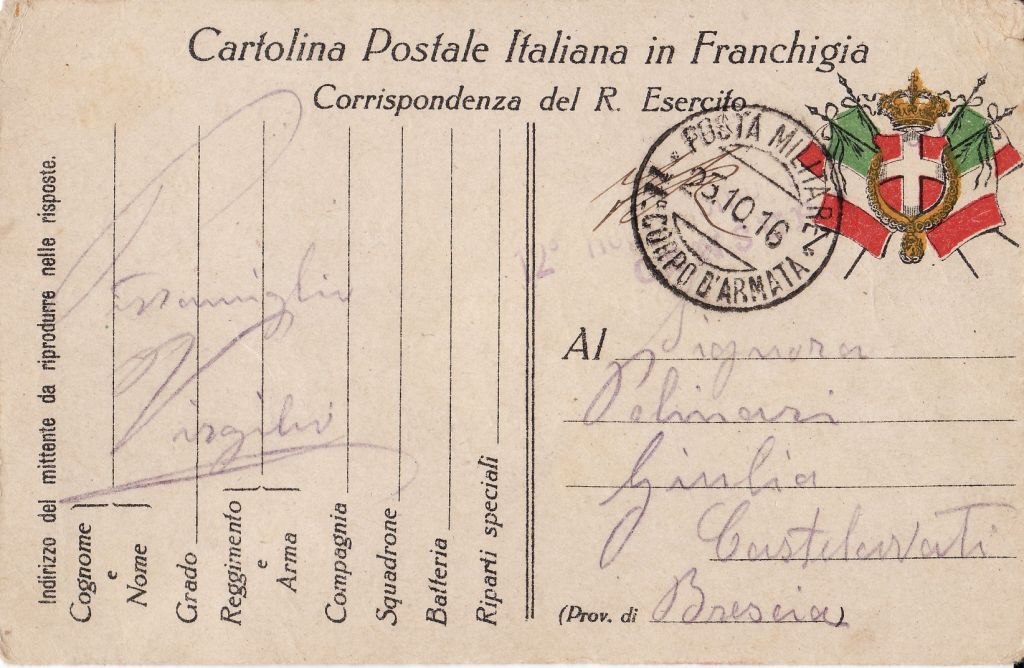 Cartolina Postale Italiana in Franchigia
Corrispondenza del R. Esercito
POSTA MILITARE
23.10.16
CORPO D'ARMATA
Indirizzo del mittente da riprodurre nelle risposte.
Cognome
e
Nome
Grado
Reggimento
e
Arma
Compagnia
Squadrone
Batteria
Riparti speciali
Virgilio
Al Signora
Giulia
(Prov. di Brescia)